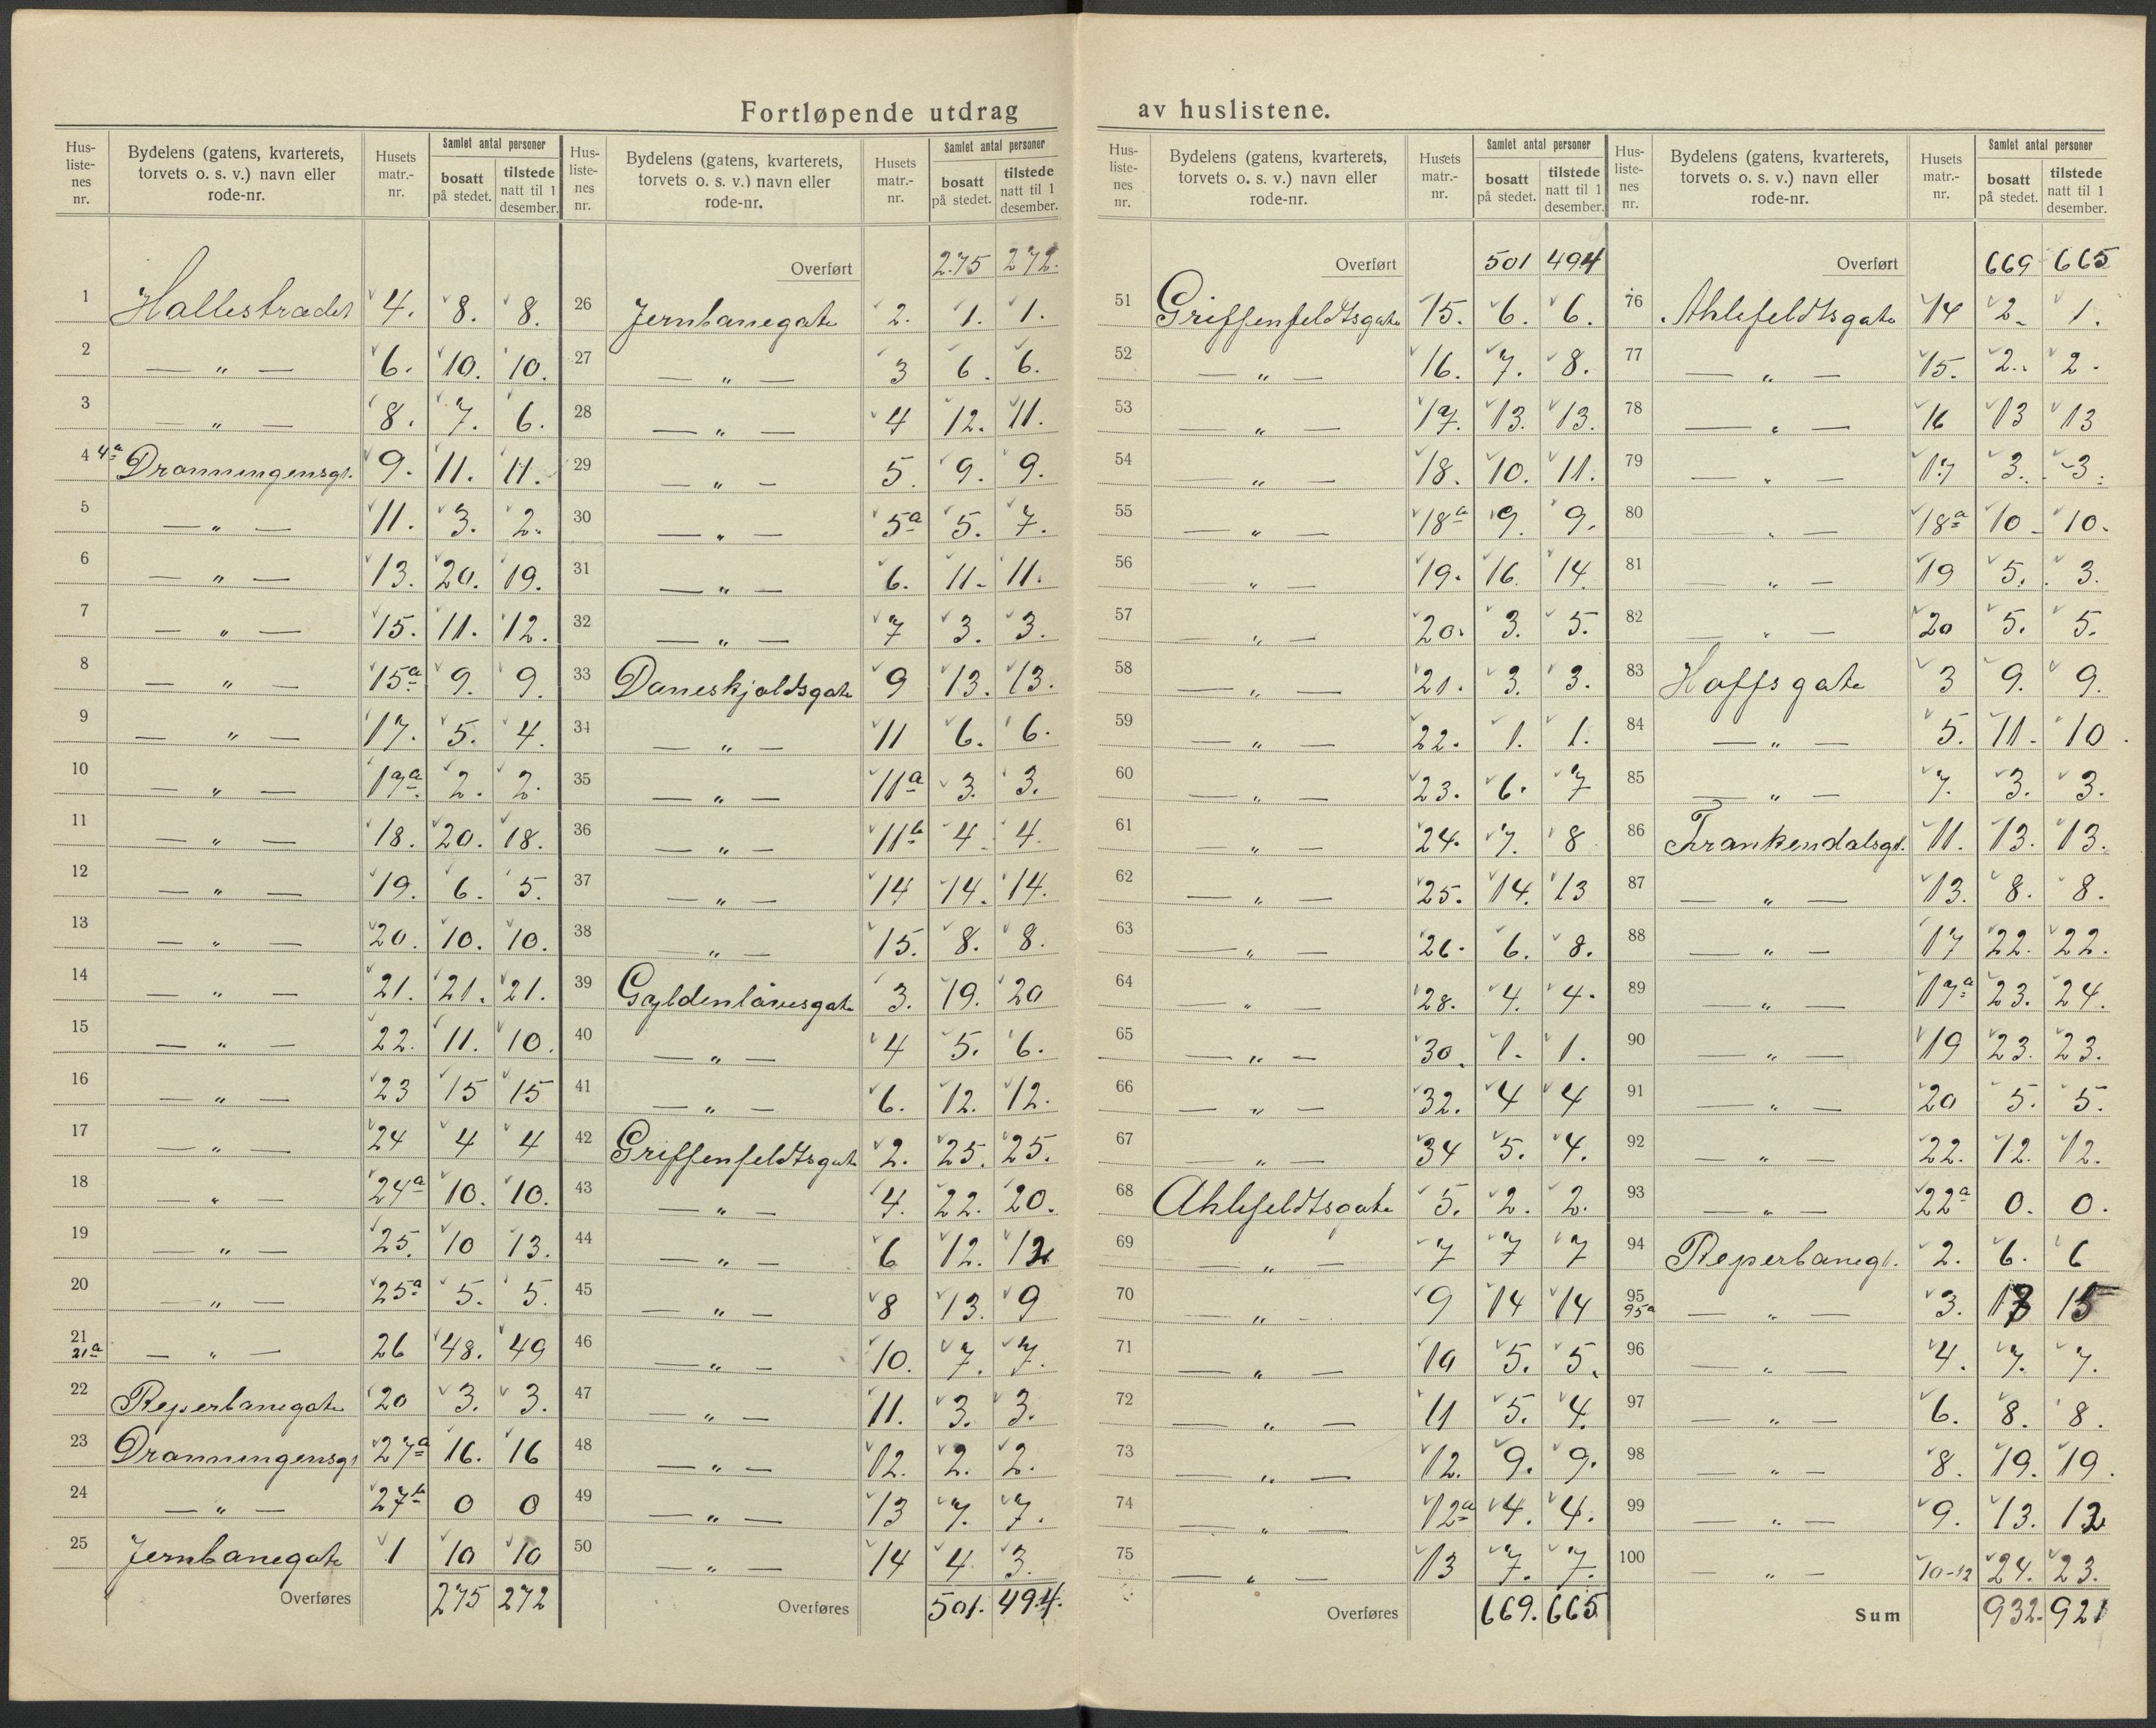 Fortløpende utdrag av huslistene.
Hus-listenes nr. | Bydelens (gatens, kvarterets, torvets o. s. v.) navn eller rode-nr. | Husets matr.-nr. | Samlet antal personer bosatt på stedet. | tilstede natt til 1 desember.
1 Hallestrædet 4. 8. 8.
2 — „ — 6. 10. 10.
3 — „ — 8. 7. 6.
4 4a Dronningensgt. 9. 11. 11.
5 — „ — 11. 3. 2.
6 — „ — 13. 20. 19.
7 — „ — 15. 11. 12.
8 — „ — 15a 9. 9.
9 — „ — 17. 5. 4.
10 — „ — 17a 2. 2.
11 — „ — 18. 20. 18.
12 — „ — 19. 6. 5.
13 — „ — 20. 10. 10.
14 — „ — 21. 21. 21.
15 — „ — 22. 11. 10.
16 — „ — 23 15 15
17 — „ — 24 4 4
18 — „ — 24a 10. 10.
19 — „ — 25. 10 13.
20 — „ — 25a 5. 5.
21 21a — „ — 26 48. 49
22 Reperbanegate 20 3. 3.
23 Dronningensgt 27a 16. 16
24 — „ — 27b 0 0
25 Jernbanegate 1 10 10
Overføres 275 272
Hus-listenes nr. | Bydelens (gatens, kvarterets, torvets o. s. v.) navn eller rode-nr. | Husets matr.-nr. | Samlet antal personer bosatt på stedet. | tilstede natt til 1 desember.
Overført 275 272.
26 Jernbanegate 2. 1. 1.
27 — „ — 3 6. 6.
28 — „ — 4 12. 11.
29 — „ — 5. 9. 9.
30 — „ — 5a 5. 7.
31 — „ — 6. 11. 11.
32 — „ — 7 3. 3.
33 Daneskjoldsgate 9 13. 13.
34 — „ — 11 6. 6.
35 — „ — 11a 3. 3.
36 — „ — 11b 4. 4.
37 — „ — 14 14. 14.
38 — „ — 15. 8. 8.
39 Gyldenløvesgate 3. 19. 20
40 — „ — 4 5. 6.
41 — „ — 6. 12. 12.
42 Griffenfeldtsgate 2. 25. 25.
43 — „ — 4. 22. 20.
44 — „ — 6 12. 12
45 — „ — 8 13. 9
46 — „ — 10. 7. 7.
47 — „ — 11. 3. 3.
48 — „ — 12. 2. 2.
49 — „ — 13 7. 7.
50 — „ — 14 4. 3.
Overføres 501. 494.
Hus-listenes nr. | Bydelens (gatens, kvarterets, torvets o. s. v.) navn eller rode-nr. | Husets matr.-nr. | Samlet antal personer bosatt på stedet. | tilstede natt til 1 desember.
Overført 501 494
51 Griffenfeldtsgate 15. 6. 6.
52 — „ — 16. 7. 8.
53 — „ — 17. 13. 13.
54 — „ — 18. 10. 11.
55 — „ — 18a 9. 9.
56 — „ — 19. 16. 14.
57 — „ — 20. 3. 5.
58 — „ — 21. 3. 3.
59 — „ — 22. 1. 1.
60 — „ — 23. 6. 7
61 — „ — 24. 7. 8
62 — „ — 25. 14. 13
63 — „ — 26. 6. 8.
64 — „ — 28. 4. 4.
65 — „ — 30. 1. 1.
66 — „ — 32. 4 4
67 — „ — 34 5. 4.
68 Ahlefeldtsgate 5. 2. 2.
69 — „ — 7 7 7
70 — „ — 9 14 14
71 — „ — 10 5. 5.
72 — „ — 11 5. 4.
73 — „ — 12. 9. 9.
74 — „ — 12a 4. 4.
75 — „ — 13 7. 7.
Overføres 669. 665
Hus-listenes nr. | Bydelens (gatens, kvarterets, torvets o. s. v.) navn eller rode-nr. | Husets matr.-nr. | Samlet antal personer bosatt på stedet. | tilstede natt til 1 desember.
Overført 669 665
76 Ahlefeldtsgate 14 2. 1.
77 — „ — 15. 2. 2.
78 — „ — 16 13 13
79 — „ — 17 3. 3.
80 — „ — 18a 10. 10.
81 — „ — 19 5. 3.
82 — „ — 20 5. 5.
83 Hoffsgate 3 9. 9.
84 — „ — 5. 11. 10.
85 — „ — 7. 3. 3.
86 Frankendalsgt. 11. 13. 13.
87 — „ — 13. 8. 8.
88 — „ — 17 22. 22.
89 — „ — 17a 23. 24.
90 — „ — 19 23. 23.
91 — „ — 20 5. 5.
92 — „ — 22. 12. 12.
93 — „ — 22a 0. 0.
94 Reperbanegt. 2. 6. 6
95 95a — „ — 3. 15
96 — „ — 4. 7. 7.
97 — „ — 6. 8. 8.
98 — „ — 8. 19. 19.
99 — „ — 9. 13. 12
100 — „ — 10-12 24. 23.
Sum 932. 921